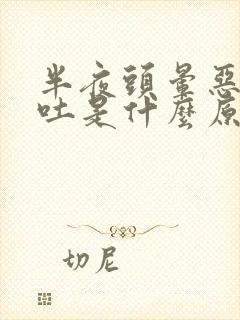 半夜頭暈惡
吐是什麼原
切尼